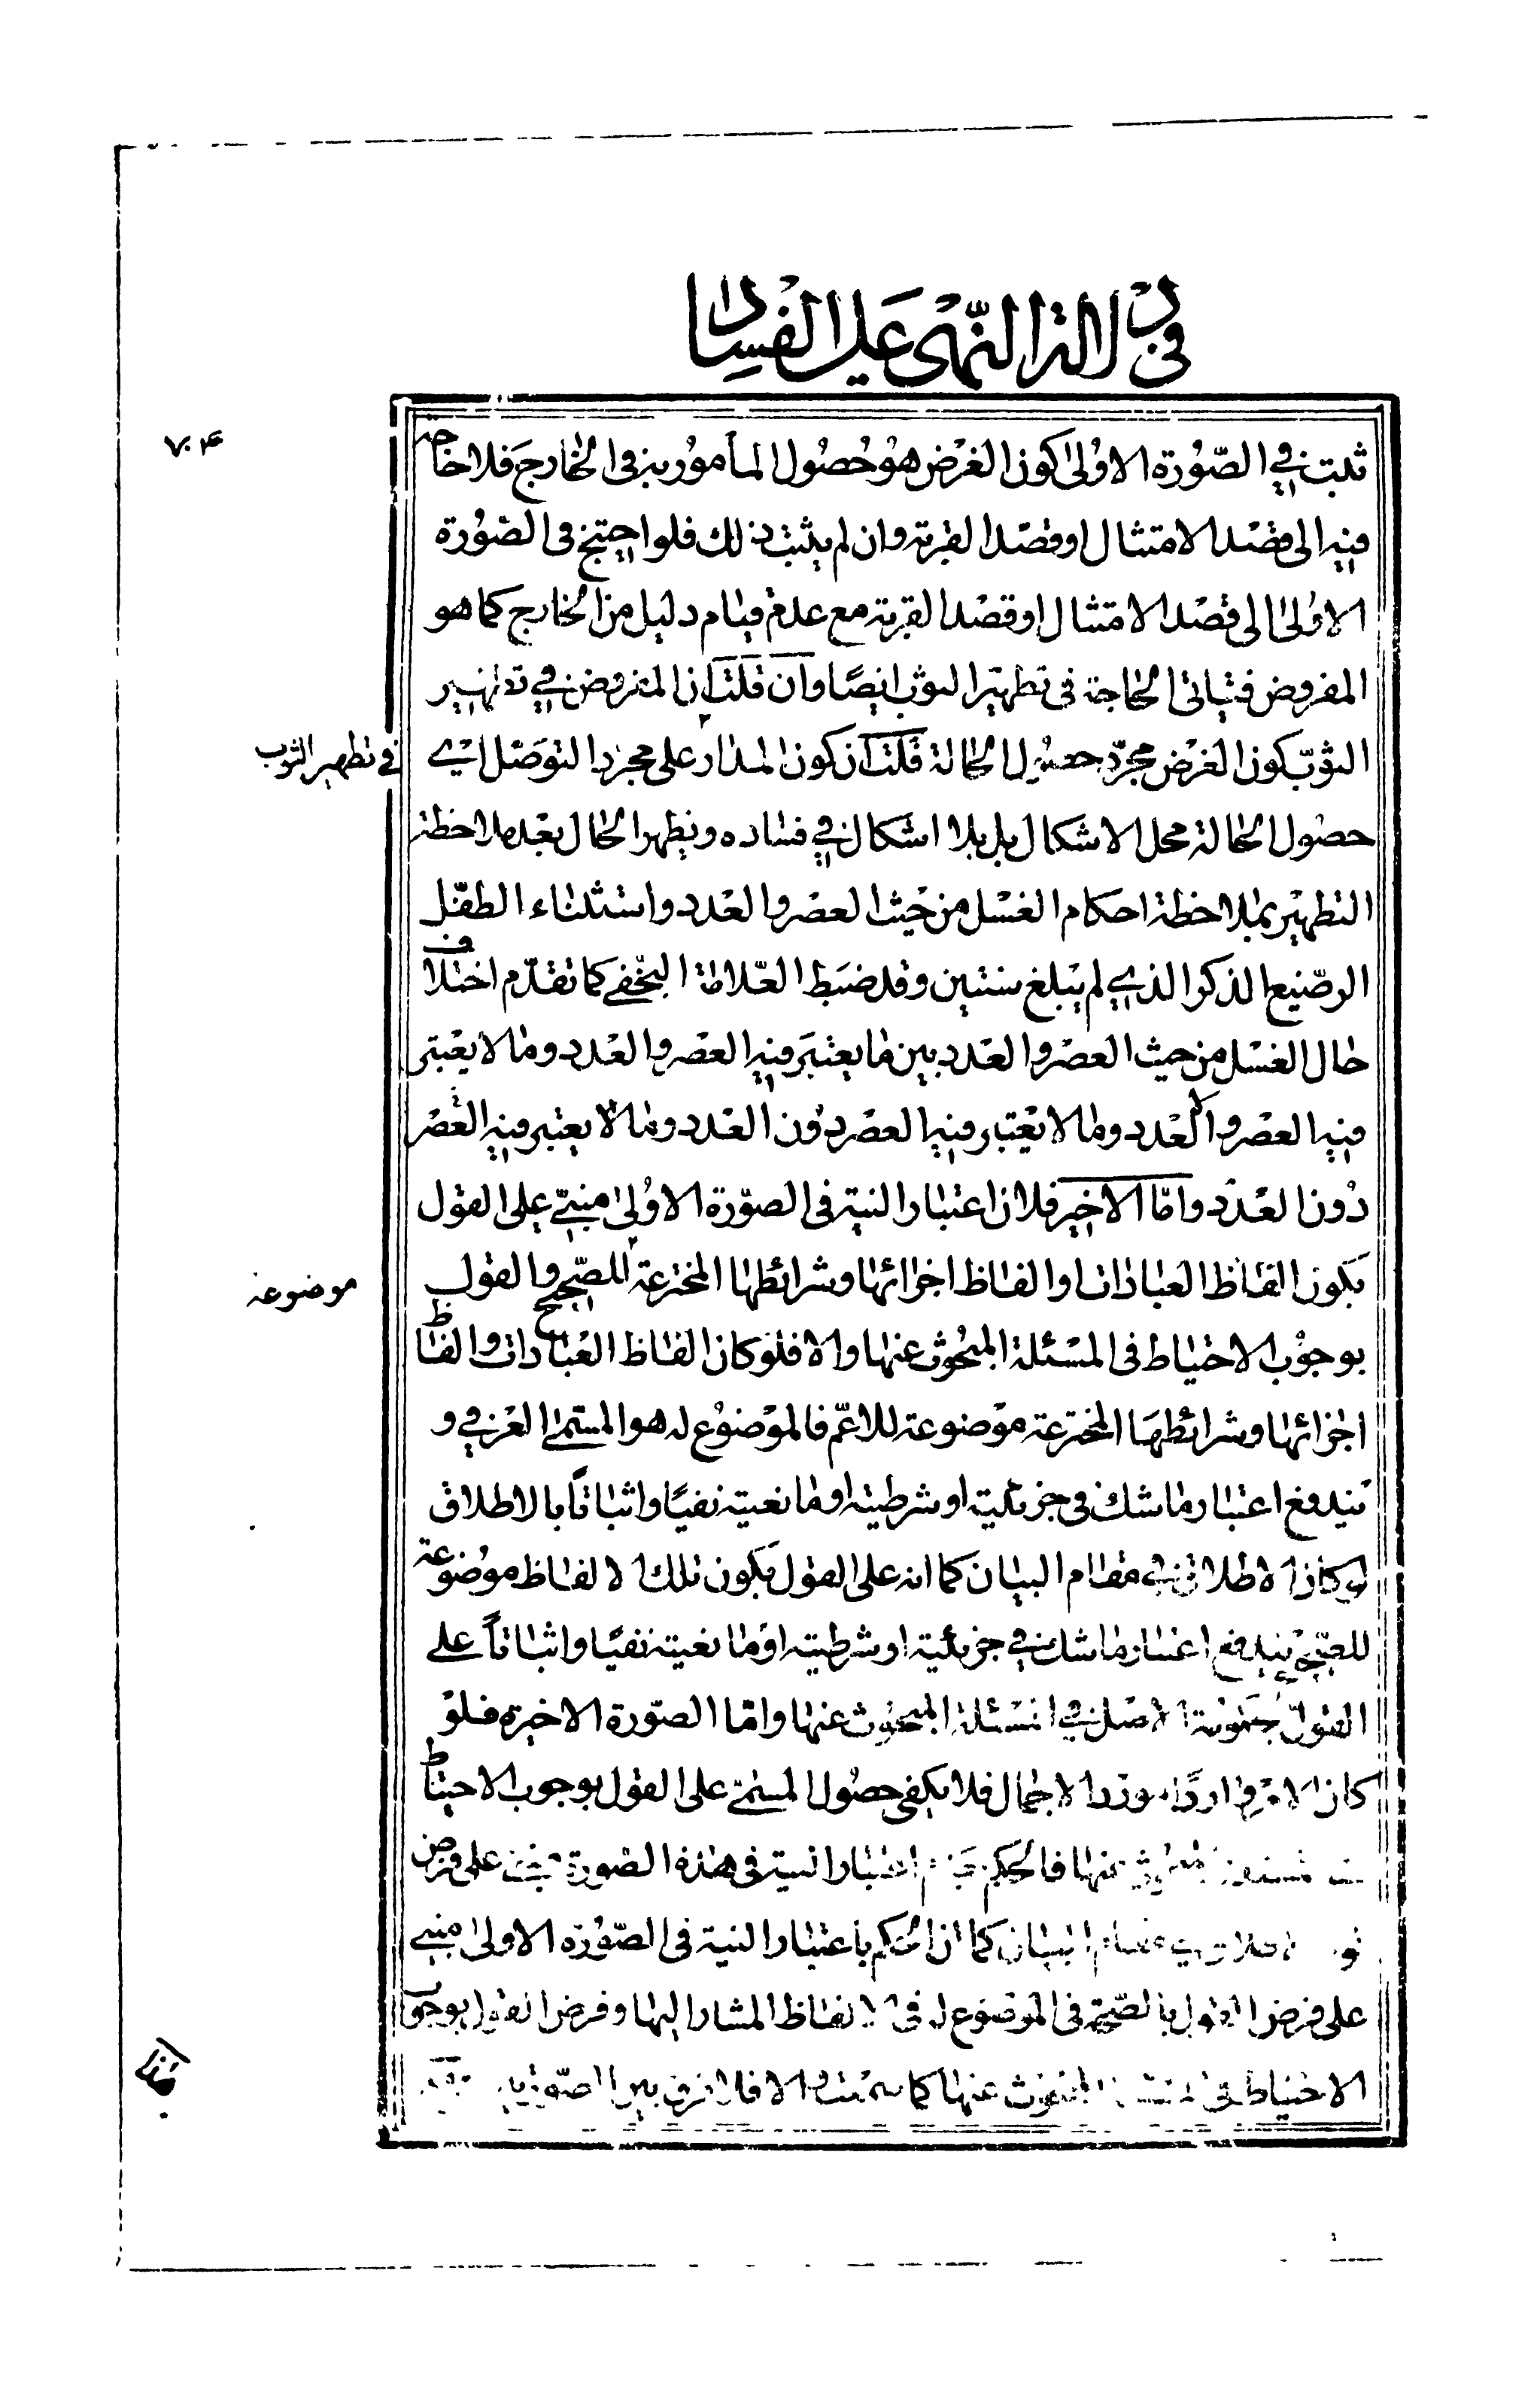 في دلالة النهي على الفساد
٧٠۴
ثبت في الصورة الاولى كون الغرض هو حصول المأمور به في الخارج فلا حاجة
فيه الى قصد الامتثال او قصد القربة وان لم يثبت ذلك فلو احتيج في الصورة
الاولى الى قصد الامتثال او قصد القربة مع عدم قيام دليل من الخارج كما هو
المفروض فيأتي الحاجة في تطهير الثوب ايضًا وان قلت ان المفروض في تطهير
الثوب كون الغرض مجرد حصول الحالة قلت ان كون المدار على مجرد التوصل الى
في تطهير الثوب
حصول الحالة محل الاشكال بل بلا اشكال في فساده ويظهر الحال بعد ملاحظة
التطهير بملاحظة احكام الغسل من حيث العصر والعدد واستثناء الطفل
الرضيع الذكر الذي لم يبلغ سنتين وقد ضبط العلامة النجفي كما تقدم اختلاف
حال الغسل من حيث العصر والعدد بين ما يعتبر فيه العصر والعدد وما لا يعتبر
فيه العصر والعدد وما لا يعتبر فيه العصر دون العدد وما لا يعتبر فيه العصر
دون العدد واما الاخير فلان اعتبار النية في الصورة الاولى مبني على القول
بكون الفاظ العبادات او الفاظ اجزائها وشرائطها المخترعة للصحيح والقول
موضوعة
بوجوب الاحتياط في المسئلة المبحوث عنها والا فلو كان الفاظ العبادات والفاظ
اجزائها وشرائطها المخترعة موضوعة للاعم فالموضوع له هو المسمى العرفي و
يندفع اعتبار ما شك في جزئيته او شرطيته او مانعيته نفيًا واثباتًا بالاطلاق
لو كان الاطلاق في مقام البيان كما انه على القول بكون تلك الالفاظ موضوعة
للصحيح يندفع اعتبار ما شك في جزئيته او شرطيته او مانعيته نفيًا واثباتًا على
القول الاصل في المسئلة المبحوث عنها واما الصورة الاخيرة فلو
كان الامر واردًا مورد الاجمال فلا يكفي حصول المسمى على القول بوجوب الاحتياط
عنها فالحكم اعتبار النية في هذه الصورة على فرض
البيان كما ان الحكم باعتبار النية في الصورة الاولى مبني
على فرض القول بالصحة في الموضوع له في الالفاظ المشار اليها وفرض القول بوجوب
الاحتياط في المبحوث عنها كما سمعت والا فلا فرق بين الصورتين